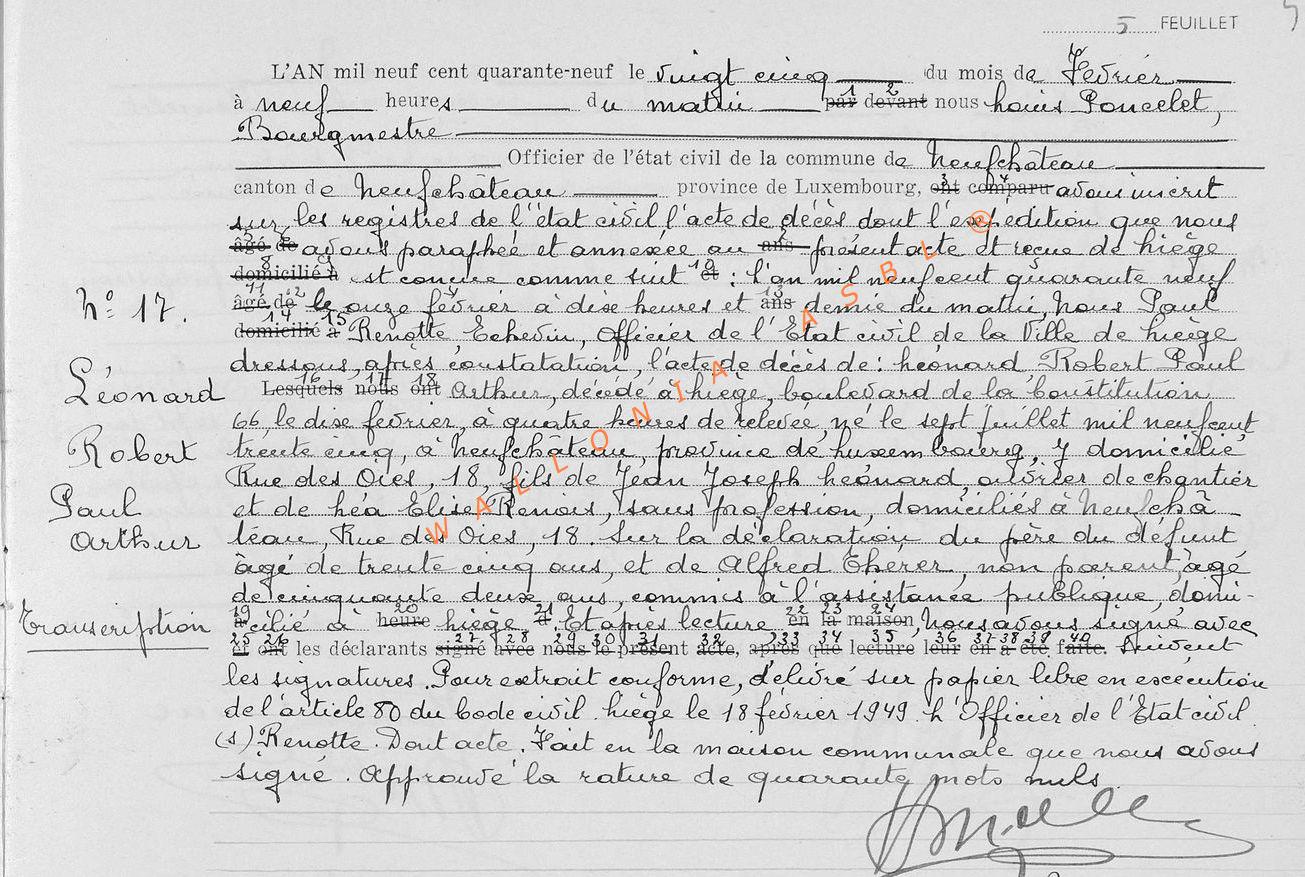 5 FEUILLET
L'AN mil neuf cent quarante-neuf le vingt cinq du mois de Fevrier
à neuf heures du matin par devant nous Louis Poncelet,
Bourgmestre
Officier de l'état civil de la commune de Neufchâteau
canton de Neufchâteau province de Luxembourg, ont comparu avons inscrit
sur les registres de l'état civil l'acte de décès dont l'expédition que nous
âgé de avons paraphée et annexée au ans présent acte et reçue de Liège
domicilié à est conçue comme suit et : L'an mil neuf cent quarante neuf
âgé de le onze février à dix heures et ans demie du matin, Nous Paul
domicilié à Renotte Echevin, Officier de l'Etat civil de la Ville de Liège
dressons, après constatation, l'acte de décès de : Léonard, Robert Paul
Lesquels nous ont Arthur, décédé à Liège, boulevard de la Constitution
66, le dix février, à quatre heures de relevée, né le sept juillet mil neuf cent
trente cinq, à Neufchâteau, province de Luxembourg, y domicilié
Rue des Oies, 18, fils de Jean Joseph Léonard, ouvrier de chantier
et de Léa Elise Renois, sans profession, domiciliés à Neufchâ-
teau, Rue des Oies, 18. Sur la déclaration du père du défunt
âgé de trente cinq ans, et de Alfred Eherer, non parent, âgé
de cinquante deux ans, commis à l'assistance publique, domi-
cilié à heure Liège et. Et après lecture en la maison, Nous avons signé avec
et ont les déclarants signé avec nous le présent acte, après que lecture leur en a été faite. Suivent
les signatures. Pour extrait conforme, délivré sur papier libre en exécution
de l'article 80 du Code civil. Liège le 18 février 1949. L'Officier de l'Etat civil
(s) Renotte. Dont acte. Fait en la maison communale que nous avons
signé. Approuvé la rature de quarante mots nuls.
N° 17.
Léonard
Robert
Paul
Arthur
Transcription
WALLONIA ASBL ®